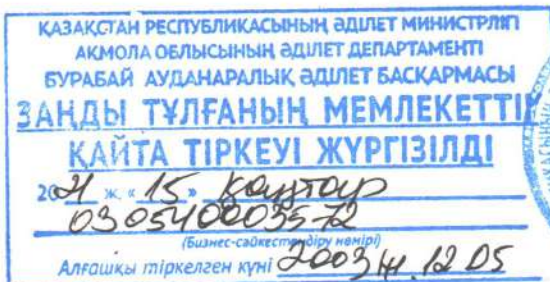 ҚАЗАҚСТАН РЕСПУБЛИКАСЫНЫҢ ӘДІЛЕТ МИНИСТРЛІГІ
АҚМОЛА ОБЛЫСЫНЫҢ ӘДІЛЕТ ДЕПАРТАМЕНТІ
БУРАБАЙ АУДАНАРАЛЫҚ ӘДІЛЕТ БАСҚАРМАСЫ
ЗАҢДЫ ТҰЛҒАНЫҢ МЕМЛЕКЕТТІК
ҚАЙТА ТІРКЕУІ ЖҮРГІЗІЛДІ
2021 ж. «15» қаңтар
030540003572
(Бизнес-сәйкестендіру нөмірі)
Алғашқы тіркелген күні 2003 ж. 12 05